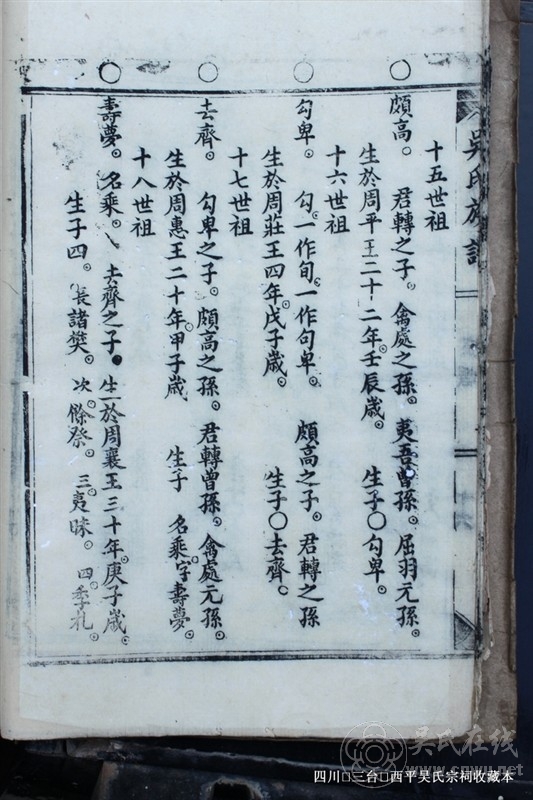 吳氏族譜
十五世祖
○頗高。君轉之子。禽處之孫。夷吾曾孫。屈羽元孫。
生於周平王二十二年壬辰歲。生子○勾卑。
十六世祖
○勾卑。勾一作旬。一作句卑。頗高之子。君轉之孫
生於周莊王四年戊子歲。生子○去齊。
十七世祖
○去齊。勾卑之子。頗高之孫。君轉曾孫。禽處元孫。
生於周惠王二十年甲子歲 生子 名乘。字壽夢。
十八世祖
○壽夢。名乘。去齊之子。生於周襄王三十年庚子歲。
生子四。長諸樊。次。餘祭。三。夷昧。四。季札。
吴氏在线
www.cnwu.net
四川□三台□西平吴氏宗祠收藏本